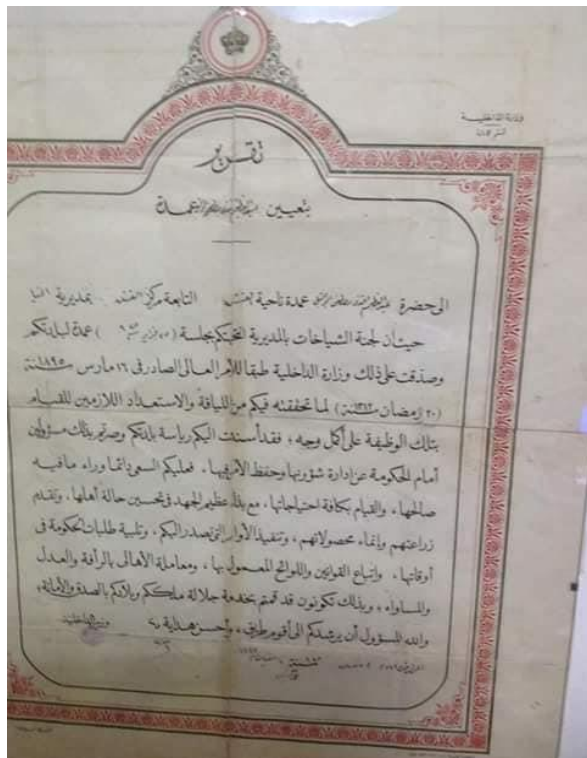 وزارة الداخلية
تقرير
بتعيين عمدة
الى حضرة عمدة ناحية التابعة مركز بمديرية
حيث أن لجنة الشياخات بالمديرية انتخبتكم بجلسة ( ) عمدة لبلدتكم
وصدقت على ذلك وزارة الداخلية طبقا للأمر العالى الصادر فى ١٦ مارس سنة ١٨٩٥
(٢٠ رمضان سنة ١٣١٢) لما تحققته فيكم من اللياقة والاستعداد اللازمين للقيام
بتلك الوظيفة على أكمل وجه، فقد أسندت اليكم رياسة بلدتكم وصرتم بذلك مسؤولين
أمام الحكومة عن إدارة شؤونها وحفظ الأمن فيها، فعليكم السعى دائما وراء ما فيه
صالحها، والقيام بكافة احتياجاتها، مع بذل عظيم الجهد فى تحسين حالة أهلها، وتقدم
زراعتهم وإنماء محصولاتهم، وتنفيذ الأوامر التى تصدر اليكم، وتلبية طلبات الحكومة فى
أوقاتها، واتباع القوانين واللوائح المعمول بها، ومعاملة الأهالى بالرأفة والعدل
والمساواه، وبذلك تكونون قد قمتم بخدمة جلالة مليككم وبلادكم بالصدق والأمانة،
والله المسؤول أن يرشدكم الى أقوم طريق، وأحسن هداية
وزير الداخلية